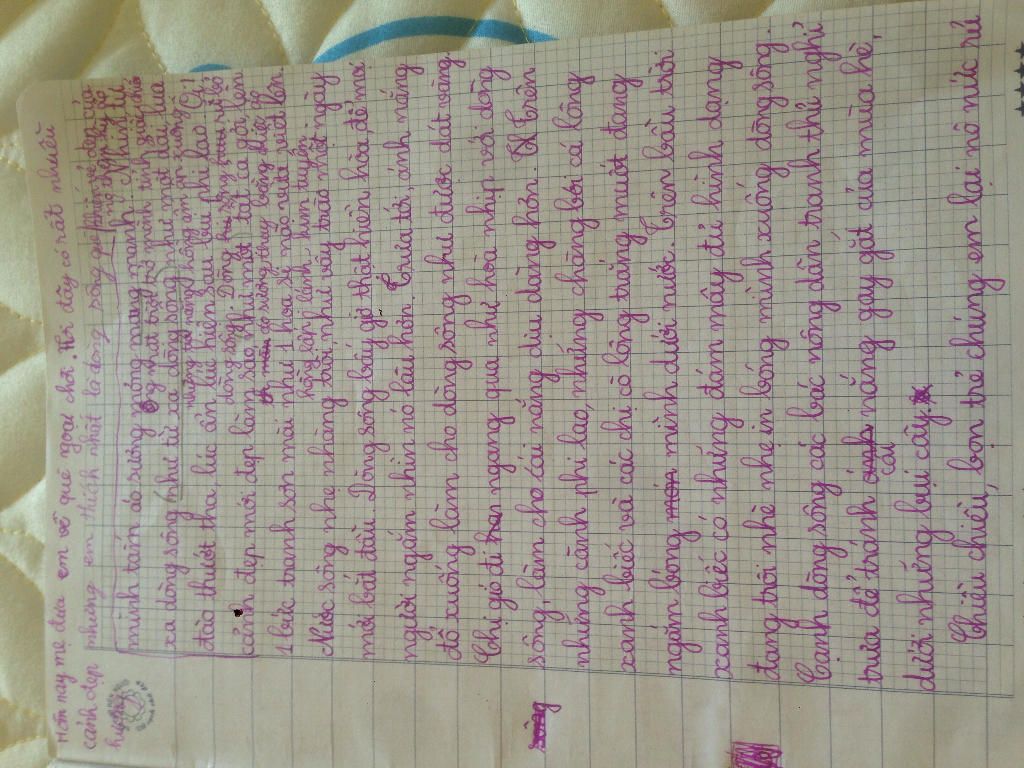 Hôm nay mẹ đưa em về quê ngoại chơi. Ở đây có rất nhiều
cảnh đẹp nhưng em thích nhất là dòng sông quê
mình trong áo sương mỏng mong manh. Nhìn từ
xa dòng sông như từ xa dòng sông như một dải lụa
đào thướt tha, lúc ẩn lúc hiện sau bụi phi lao. Ôi
dòng sông
cảm đẹp mới đẹp làm sao, như một tất cả gợi lên
1 bức tranh sơn mài như 1 họa sĩ nào vừa mới lên.
Nước sông nhẹ nhàng trôi như vẫy chào một ngày
mới bắt đầu. Dòng sông bây giờ thật hiền hòa, để mọi
người ngắm nhìn nó lâu hơn. Trưa tới, ánh nắng
đổ xuống làm cho dòng sông như được dát vàng.
Chị gió đi ngang qua như hoà nhịp với dòng
sông, làm cho cái nắng dịu dàng hơn. Trên
những cành phi lao, những chàng bói cá lông
xanh biếc và các chị cò lông trắng muốt đang
ngắm bóng mình dưới nước. Trên bầu trời
xanh biếc có những đám mây đủ hình dạng
đang trôi nhè nhẹ in bóng mình xuống dòng sông.
Cạnh dòng sông các bác nông dân tranh thủ nghỉ
trưa để tránh cái nắng gay gắt của mùa hè,
dưới những bụi cây.
Chiều chiều, bọn trẻ chúng em lại nô nức rủ